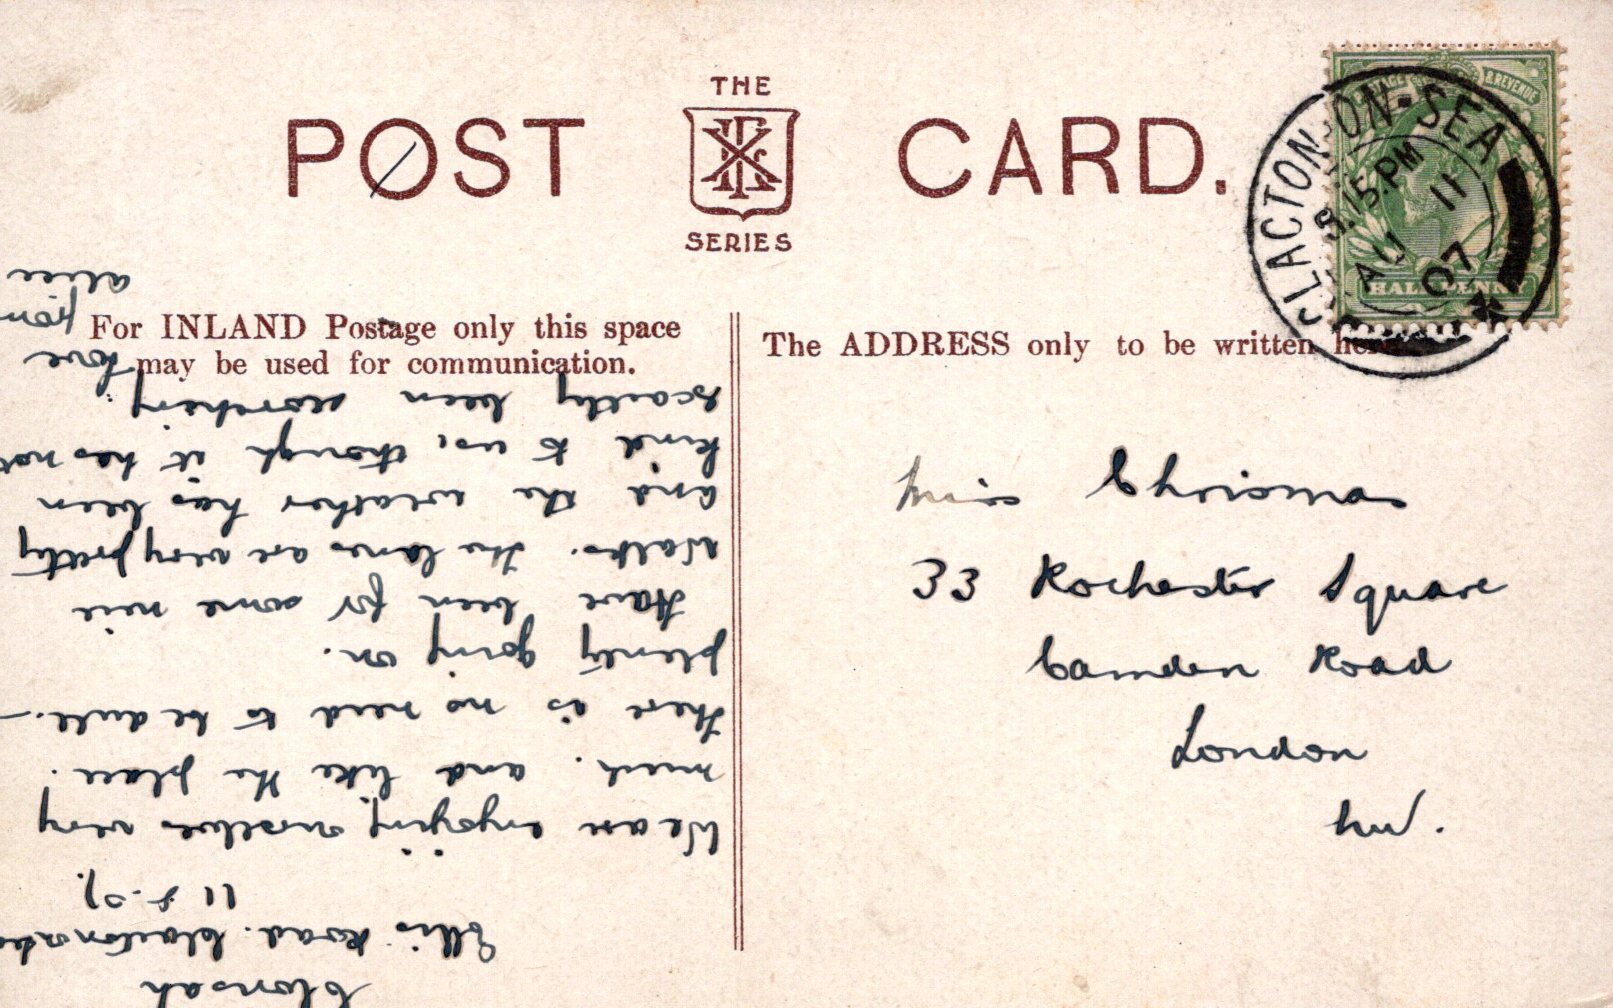 THE
POST CARD.
SERIES
CLACTON-ON-SEA
8.15.PM
AU 11
07
& REVENUE
HALFPENNY
For INLAND Postage only this space
may be used for communication.
The ADDRESS only to be written here.
Miss Chrismas
33 Rochester Square
Camden Road
London
NW.
Clonsah
Ellis Road. Clacton on Se
11-8-07.
We are enjoying ourselves very
much. and like the place.
There is no need to be dull. -
plenty going on.
Have been for some nice
Walks. The lanes are very pretty
and the weather has been
kind to us, though it has not
exactly been scorching.
love
from
Alice